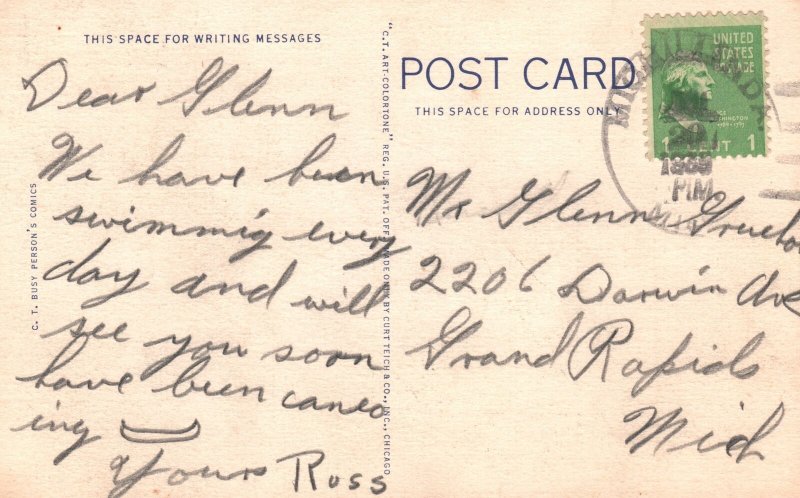 THIS SPACE FOR WRITING MESSAGES
Dear Glenn
We have been
swimmig every
day and will
see you soon
have been caneo
ing
Yours Russ
C. T. BUSY PERSON'S COMICS
"C. T. ART-COLORTONE" REG. U.S. PAT. OFF. MADE ONLY BY CURT TEICH & CO., INC., CHICAGO
POST CARD
THIS SPACE FOR ADDRESS ONLY
UNITED
STATES
POSTAGE
1 CENT 1
20
1939
PM
Mr Glenn
2206 Darwin Ave
Grand Rapids
Mich